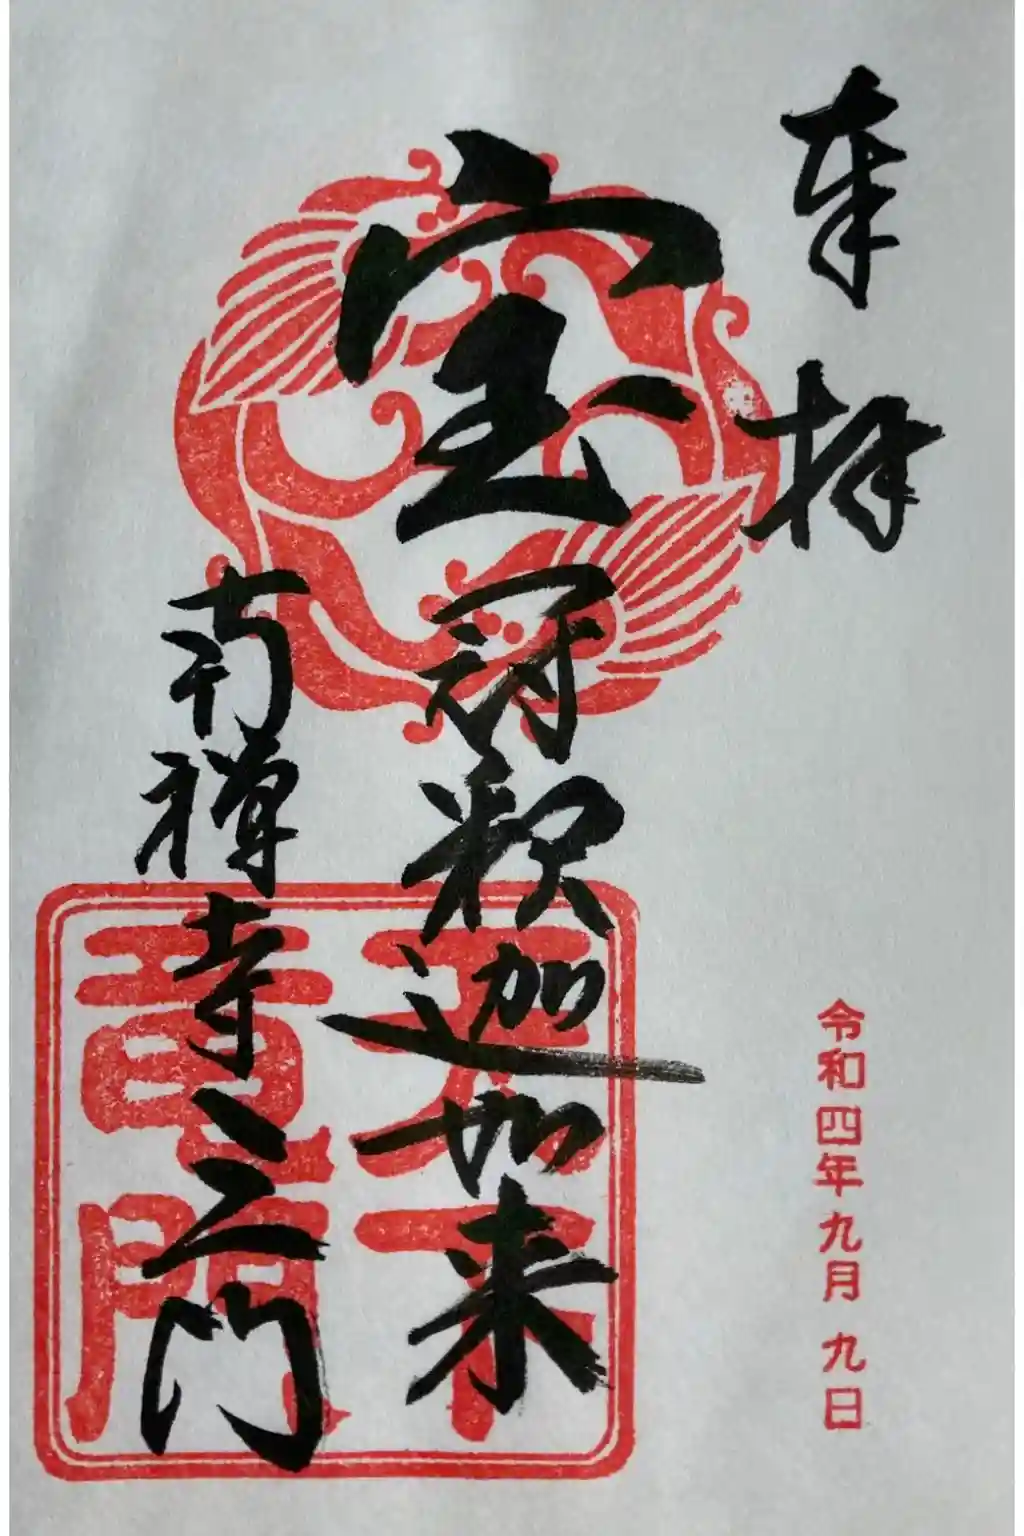 奉拝
令和四年九月九日
宝冠釈迦如来
南禅寺三門
天下
竜門